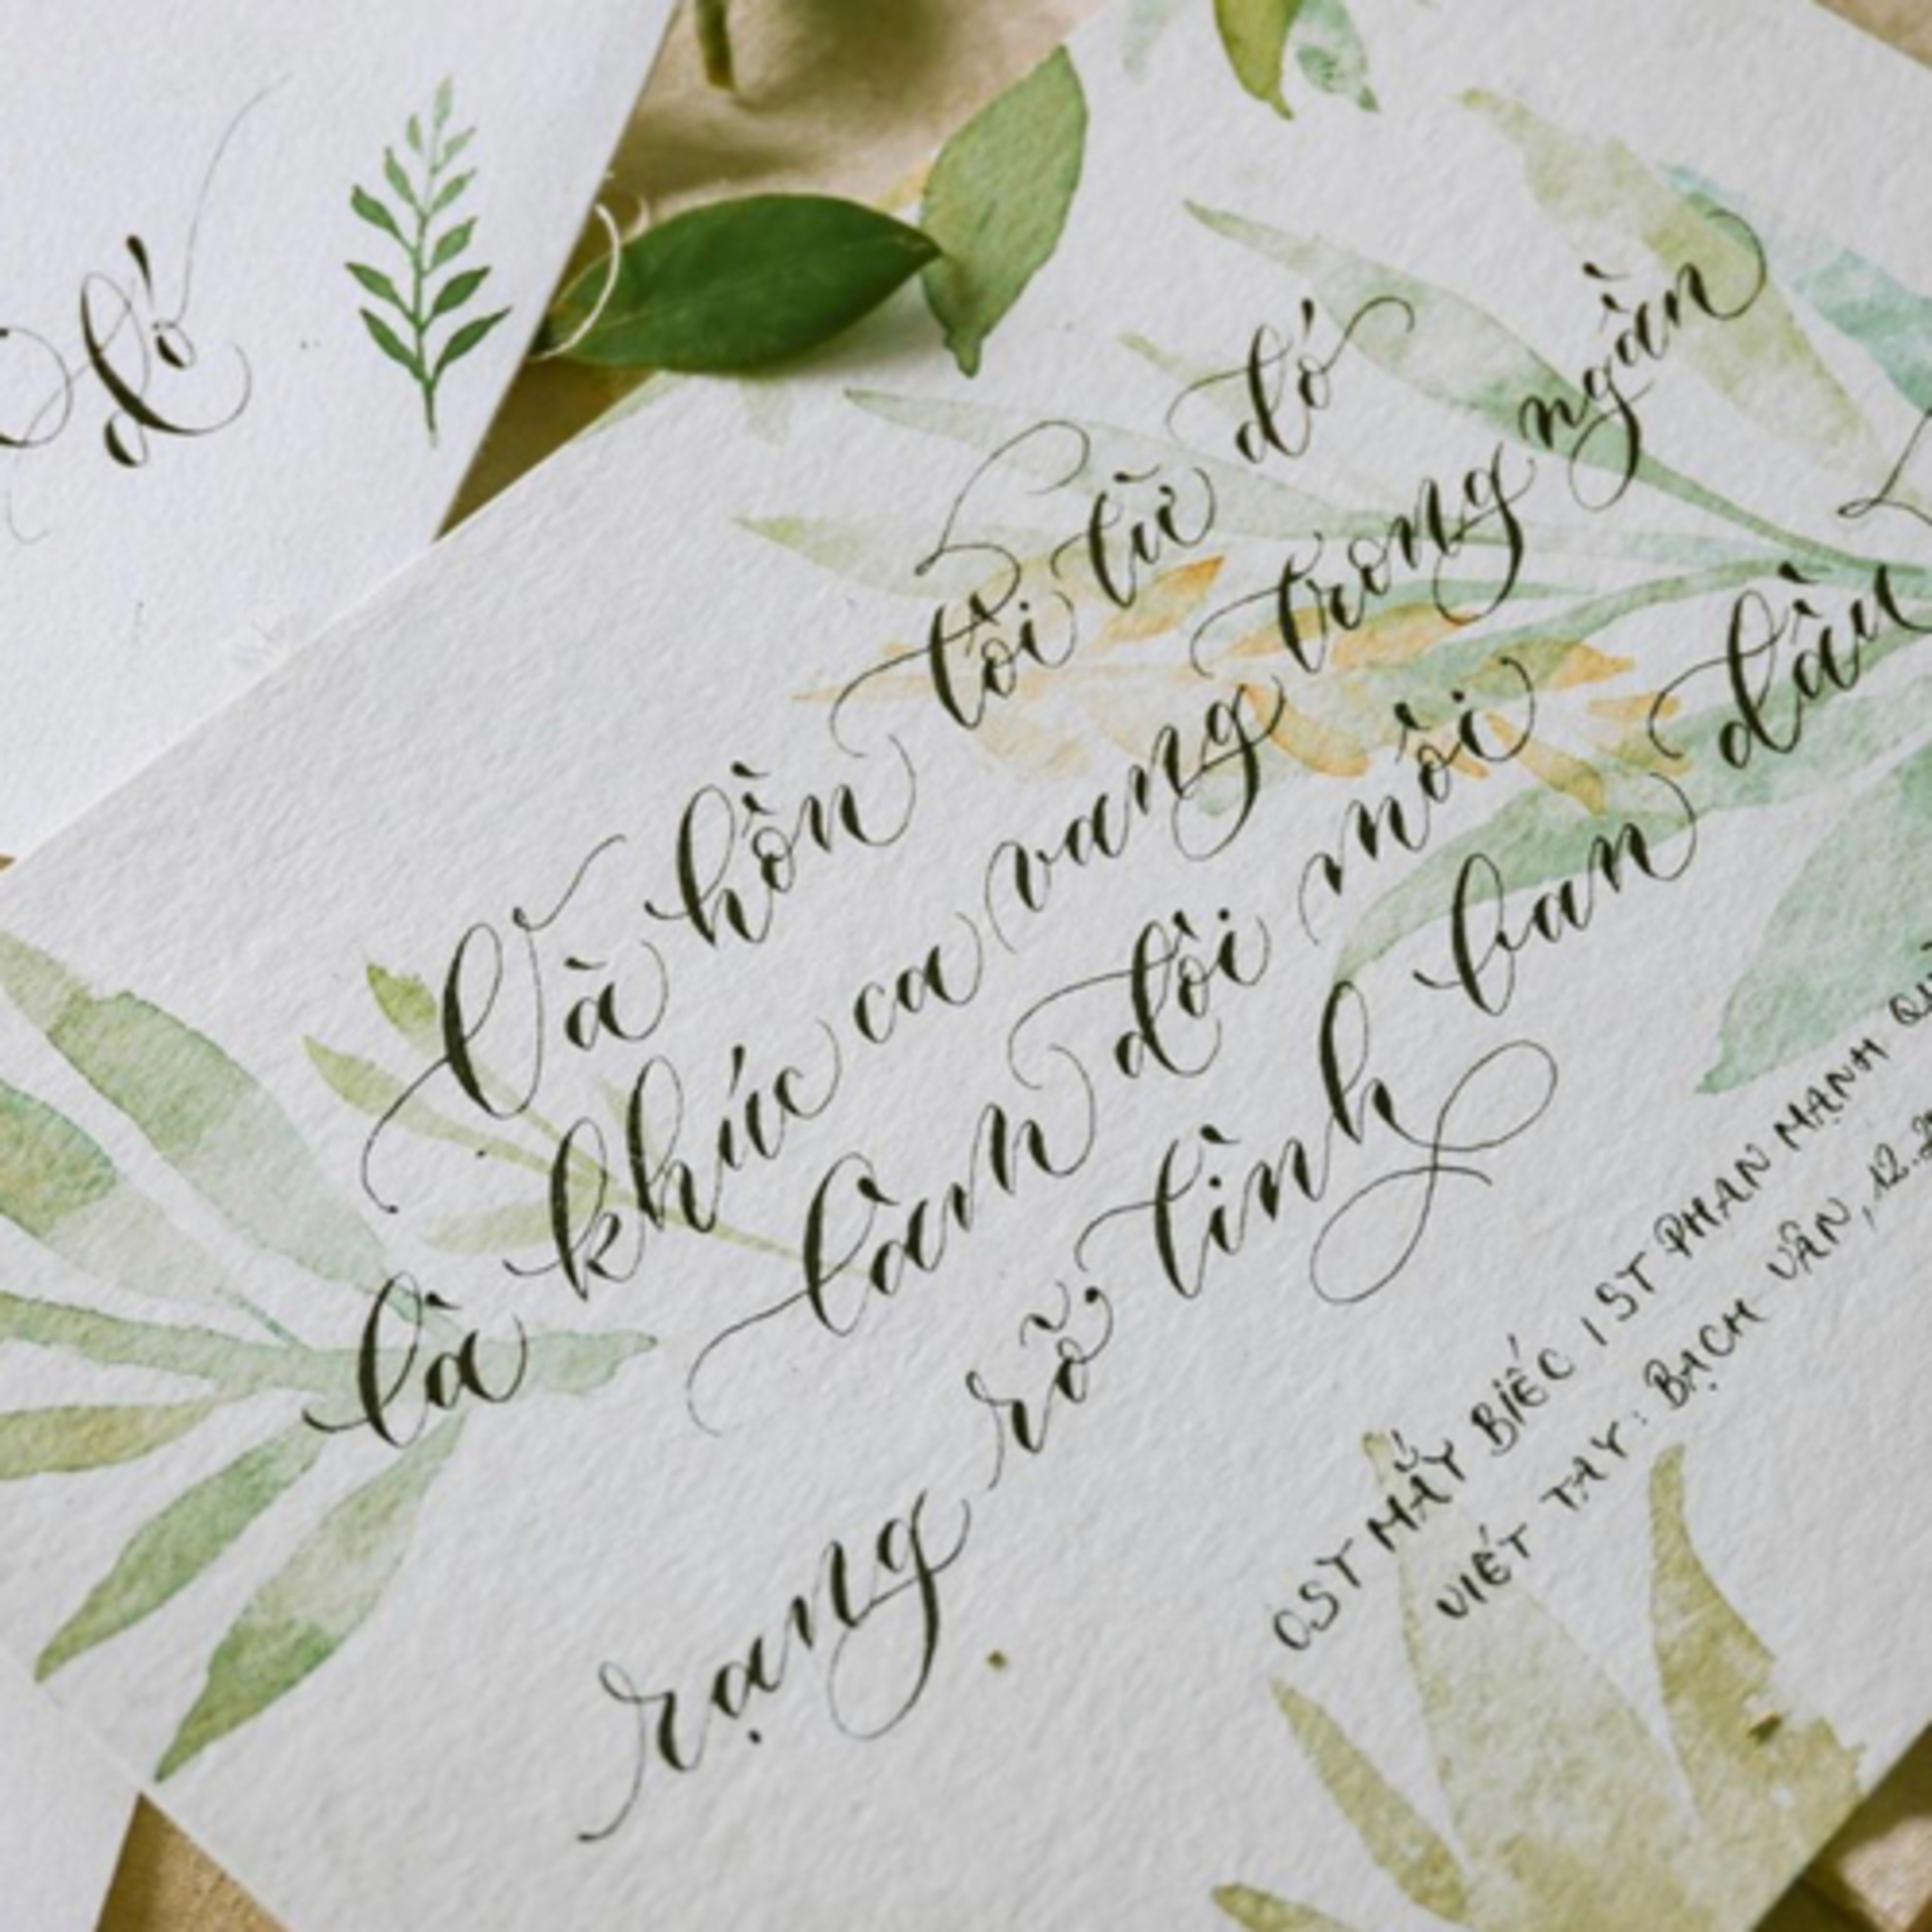 đó
Và hồn tôi từ đó
là khúc ca vang trong ngàn
làn đồi môi
rạng rỡ, tình ban đầu
OST MẮT BIẾC | ST PHAN MẠNH
VIẾT TAY: BẠCH VÂN, 12.